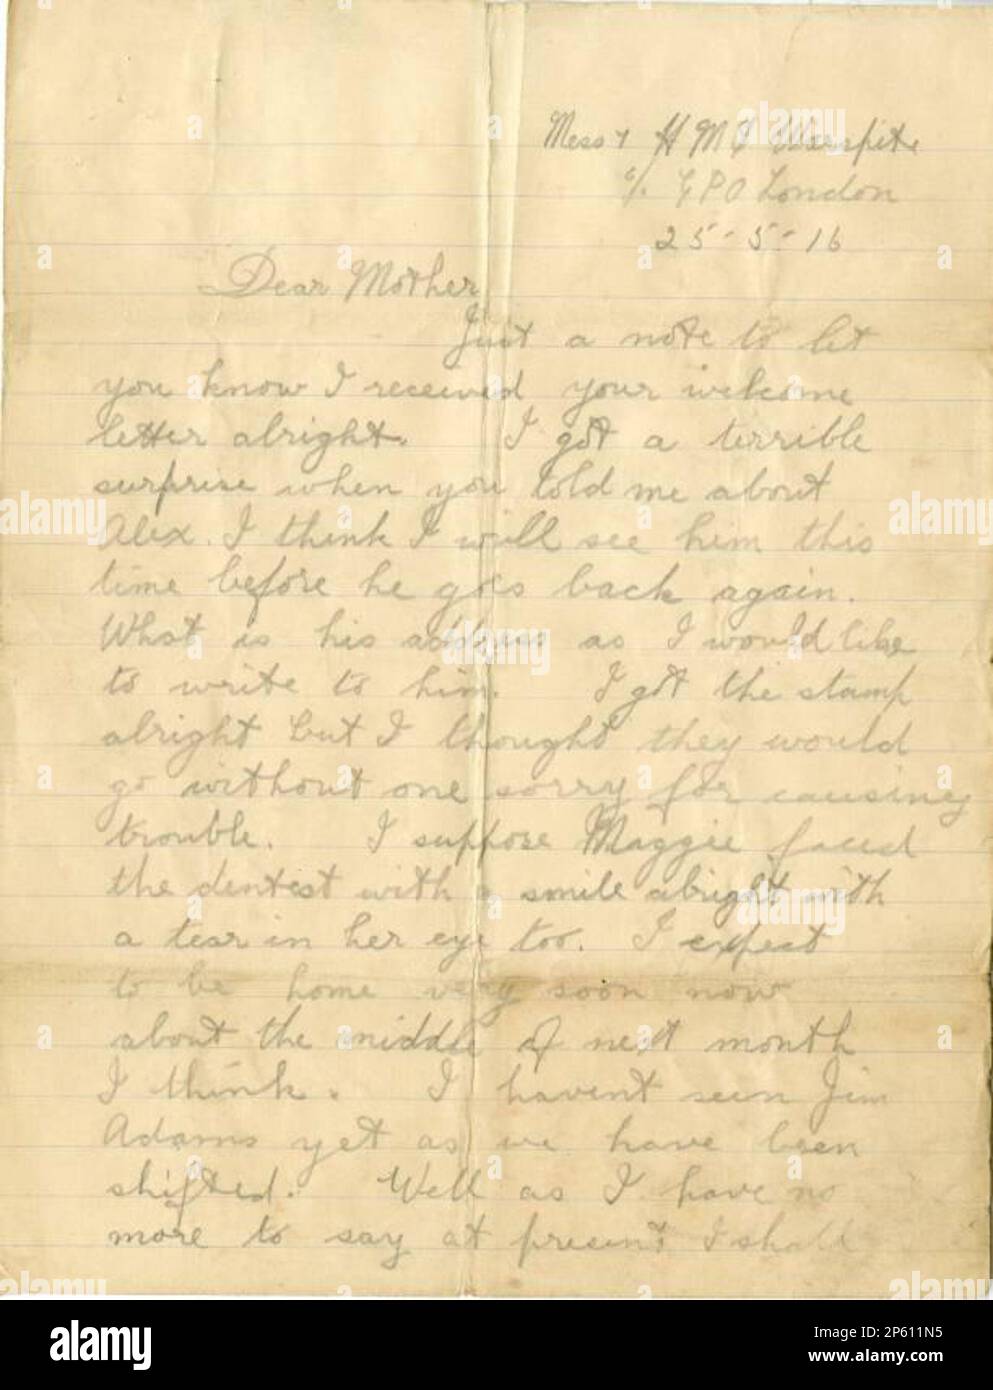 Mess 7 H M S Warspite
c/. G P O London
25-5-16
Dear Mother
Just a note to let
you know I received your welcome
letter alright. I got a terrible
surprise when you told me about
Alex. I think I will see him this
time before he goes back again.
What is his address as I would like
to write to him. I got the stamp
alright but I thought they would
go without one sorry for causing
trouble. I suppose Maggie faced
the dentist with a smile alright with
a tear in her eye too. I expect
to be home very soon now
about the middle of next month
I think. I havent seen Jim
Adams yet as we have been
shifted. Well as I have no
more to say at present I shall
alamy
Image ID: 2P611N5
www.alamy.com